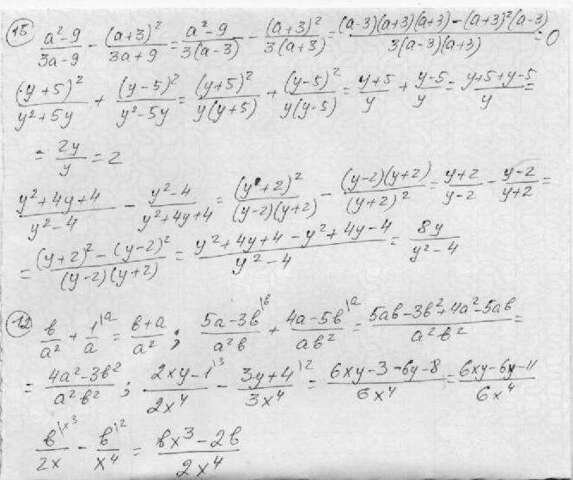 (15) (a²-9)/(3a-9) - (a+3)²/(3a+9) = (a²-9)/(3(a-3)) - (a+3)²/(3(a+3)) = ((a-3)(a+3)(a+3)-(a+3)²(a-3))/(3(a-3)(a+3)) = 0
(y+5)²/(y²+5y) + (y-5)²/(y²-5y) = (y+5)²/(y(y+5)) + (y-5)²/(y(y-5)) = (y+5)/y + (y-5)/y = (y+5+y-5)/y =
= 2y/y = 2
(y²+4y+4)/(y²-4) - (y²-4)/(y²+4y+4) = (y+2)²/((y-2)(y+2)) - ((y-2)(y+2))/(y+2)² = (y+2)/(y-2) - (y-2)/(y+2) =
= ((y+2)²-(y-2)²)/((y-2)(y+2)) = (y²+4y+4-y²+4y-4)/(y²-4) = 8y/(y²-4)
(12) в/a² + 1\a/a = (в+a)/a² ; (5a-3в\в)/(a²в) + (4a-5в\a)/(aв²) = (5aв-3в²+4a²-5aв)/(a²в²) =
= (4a²-3в²)/(a²в²) ; (2xy-1\3)/(2x⁴) - (3y+4\2)/(3x⁴) = (6xy-3-6y-8)/(6x⁴) = (6xy-6y-11)/(6x⁴)
в\x³/(2x) - в\2/x⁴ = (вx³-2в)/(2x⁴)